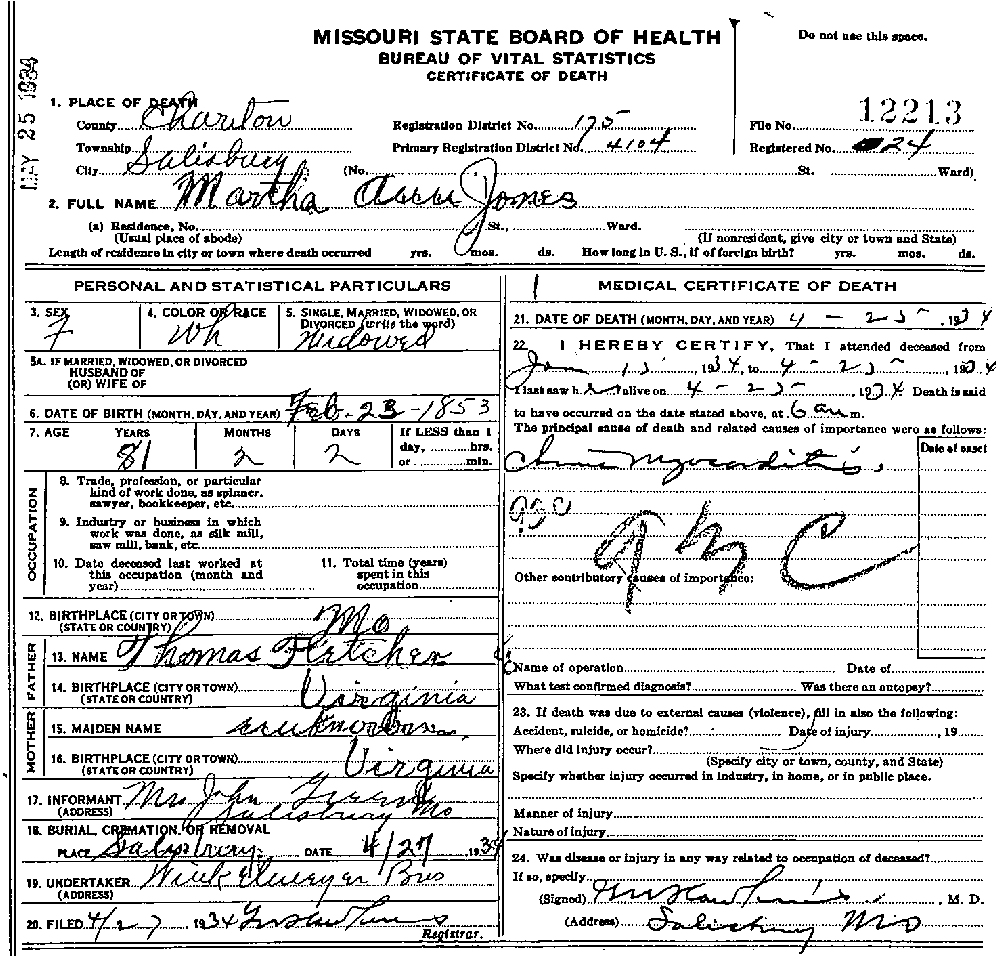 MISSOURI STATE BOARD OF HEALTH
BUREAU OF VITAL STATISTICS
CERTIFICATE OF DEATH
Do not use this space.
MAY 25 1934
1. PLACE OF DEATH
County Chariton Registration District No. 175 File No. 12213
Township Salisbury Primary Registration District No. 4104 Registered No. 24
City (No. St. Ward)
2. FULL NAME Martha Jones
(a) Residence, No. St., Ward.
(Usual place of abode) (If nonresident, give city or town and State)
Length of residence in city or town where death occurred yrs. mos. ds. How long in U. S., if of foreign birth? yrs. mos. ds.
PERSONAL AND STATISTICAL PARTICULARS
3. SEX F
4. COLOR OR RACE Wh
5. SINGLE, MARRIED, WIDOWED, OR DIVORCED (write the word) Widowed
5A. IF MARRIED, WIDOWED, OR DIVORCED
HUSBAND OF
(OR) WIFE OF
6. DATE OF BIRTH (MONTH, DAY, AND YEAR) Feb. 23 - 1853
7. AGE YEARS MONTHS DAYS If LESS than 1
81 2 2 day, hrs.
or min.
OCCUPATION
8. Trade, profession, or particular
kind of work done, as spinner,
sawyer, bookkeeper, etc.
9. Industry or business in which
work was done, as silk mill,
saw mill, bank, etc.
10. Date deceased last worked at
this occupation (month and
year)
11. Total time (years)
spent in this
occupation
12. BIRTHPLACE (CITY OR TOWN)
(STATE OR COUNTRY) Mo
FATHER
13. NAME Thomas Fletcher
14. BIRTHPLACE (CITY OR TOWN)
(STATE OR COUNTRY) Virginia
MOTHER
15. MAIDEN NAME
16. BIRTHPLACE (CITY OR TOWN)
(STATE OR COUNTRY) Virginia
17. INFORMANT Mrs John
(ADDRESS) Salisbury Mo
18. BURIAL, CREMATION, OR REMOVAL
PLACE Salisbury DATE 4/27 1934
19. UNDERTAKER Bros
(ADDRESS)
20. FILED 4/27 1934
Registrar.
MEDICAL CERTIFICATE OF DEATH
21. DATE OF DEATH (MONTH, DAY, AND YEAR) 4 - 25 - , 1934
22. I HEREBY CERTIFY, That I attended deceased from
Jan 15, 1934, to 4 - 25 - , 1934
I last saw her alive on 4 - 25 - , 1934 Death is said
to have occurred on the date stated above, at 6 am m.
The principal cause of death and related causes of importance were as follows:
Date of onset
Myocarditis
Other contributory causes of importance:
Name of operation Date of
What test confirmed diagnosis? Was there an autopsy?
23. If death was due to external causes (violence), fill in also the following:
Accident, suicide, or homicide? Date of injury , 19
Where did injury occur?
(Specify city or town, county, and State)
Specify whether injury occurred in industry, in home, or in public place.
Manner of injury
Nature of injury
24. Was disease or injury in any way related to occupation of deceased?
If so, specify
(Signed) , M. D.
(Address) Salisbury Mo